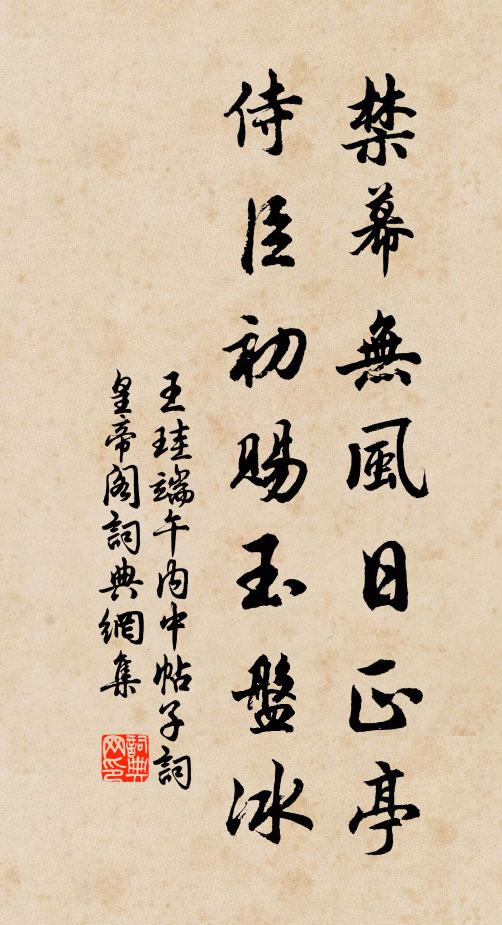 禁幕無風日正亭
侍臣初賜玉盤冰
王珪端午内中帖子詞
皇帝閣詞典網集
詞典网印